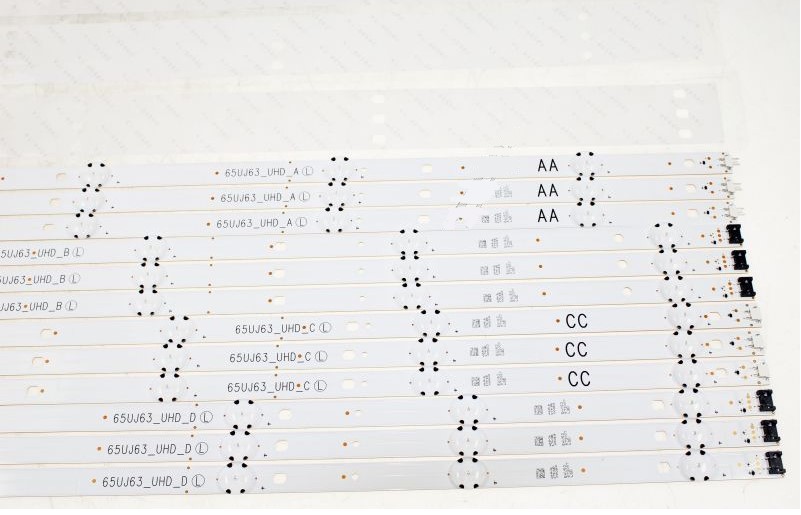 65UJ63_UHD_A Ⓛ AA
65UJ63_UHD_A Ⓛ AA
65UJ63_UHD_A Ⓛ AA
65UJ63_UHD_B Ⓛ
65UJ63_UHD_B Ⓛ
65UJ63_UHD_B Ⓛ
65UJ63_UHD_C Ⓛ CC
65UJ63_UHD_C Ⓛ CC
65UJ63_UHD_C Ⓛ CC
65UJ63_UHD_D Ⓛ
65UJ63_UHD_D Ⓛ
65UJ63_UHD_D Ⓛ